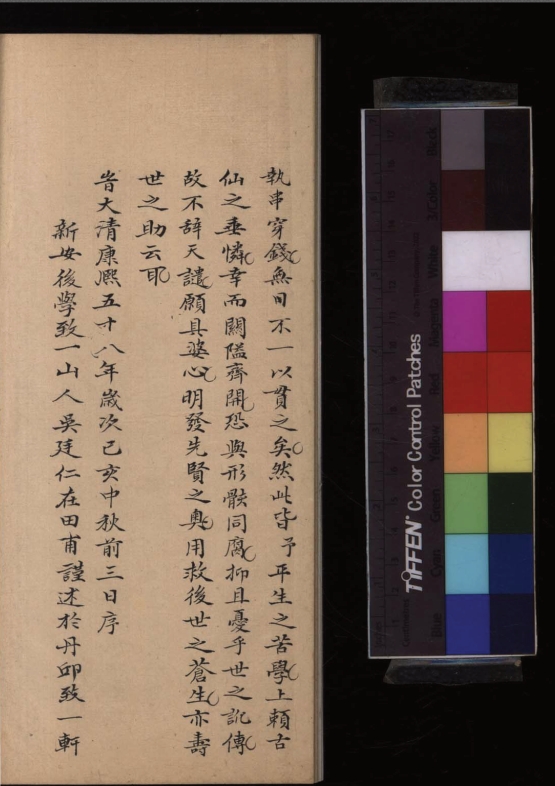 執串穿錢無間不一以貫之矣然此皆予平生之苦學上賴古
仙之垂憐幸而關隘齊開恐與形骸同腐抑且憂乎世之訛傳
故不辞天譴願具婆心明發先賢之奧用救後世之蒼生亦壽
世之助云耶
旹大清康熈五十八年歲次己亥中秋前三日序
新安後學致一山人吳廷仁在田甫謹述於丹邱致一軒
TIFFEN® Color Control Patches
Blue
Cyan
Green
Yellow
Red
Magenta
White
3/Color
Black